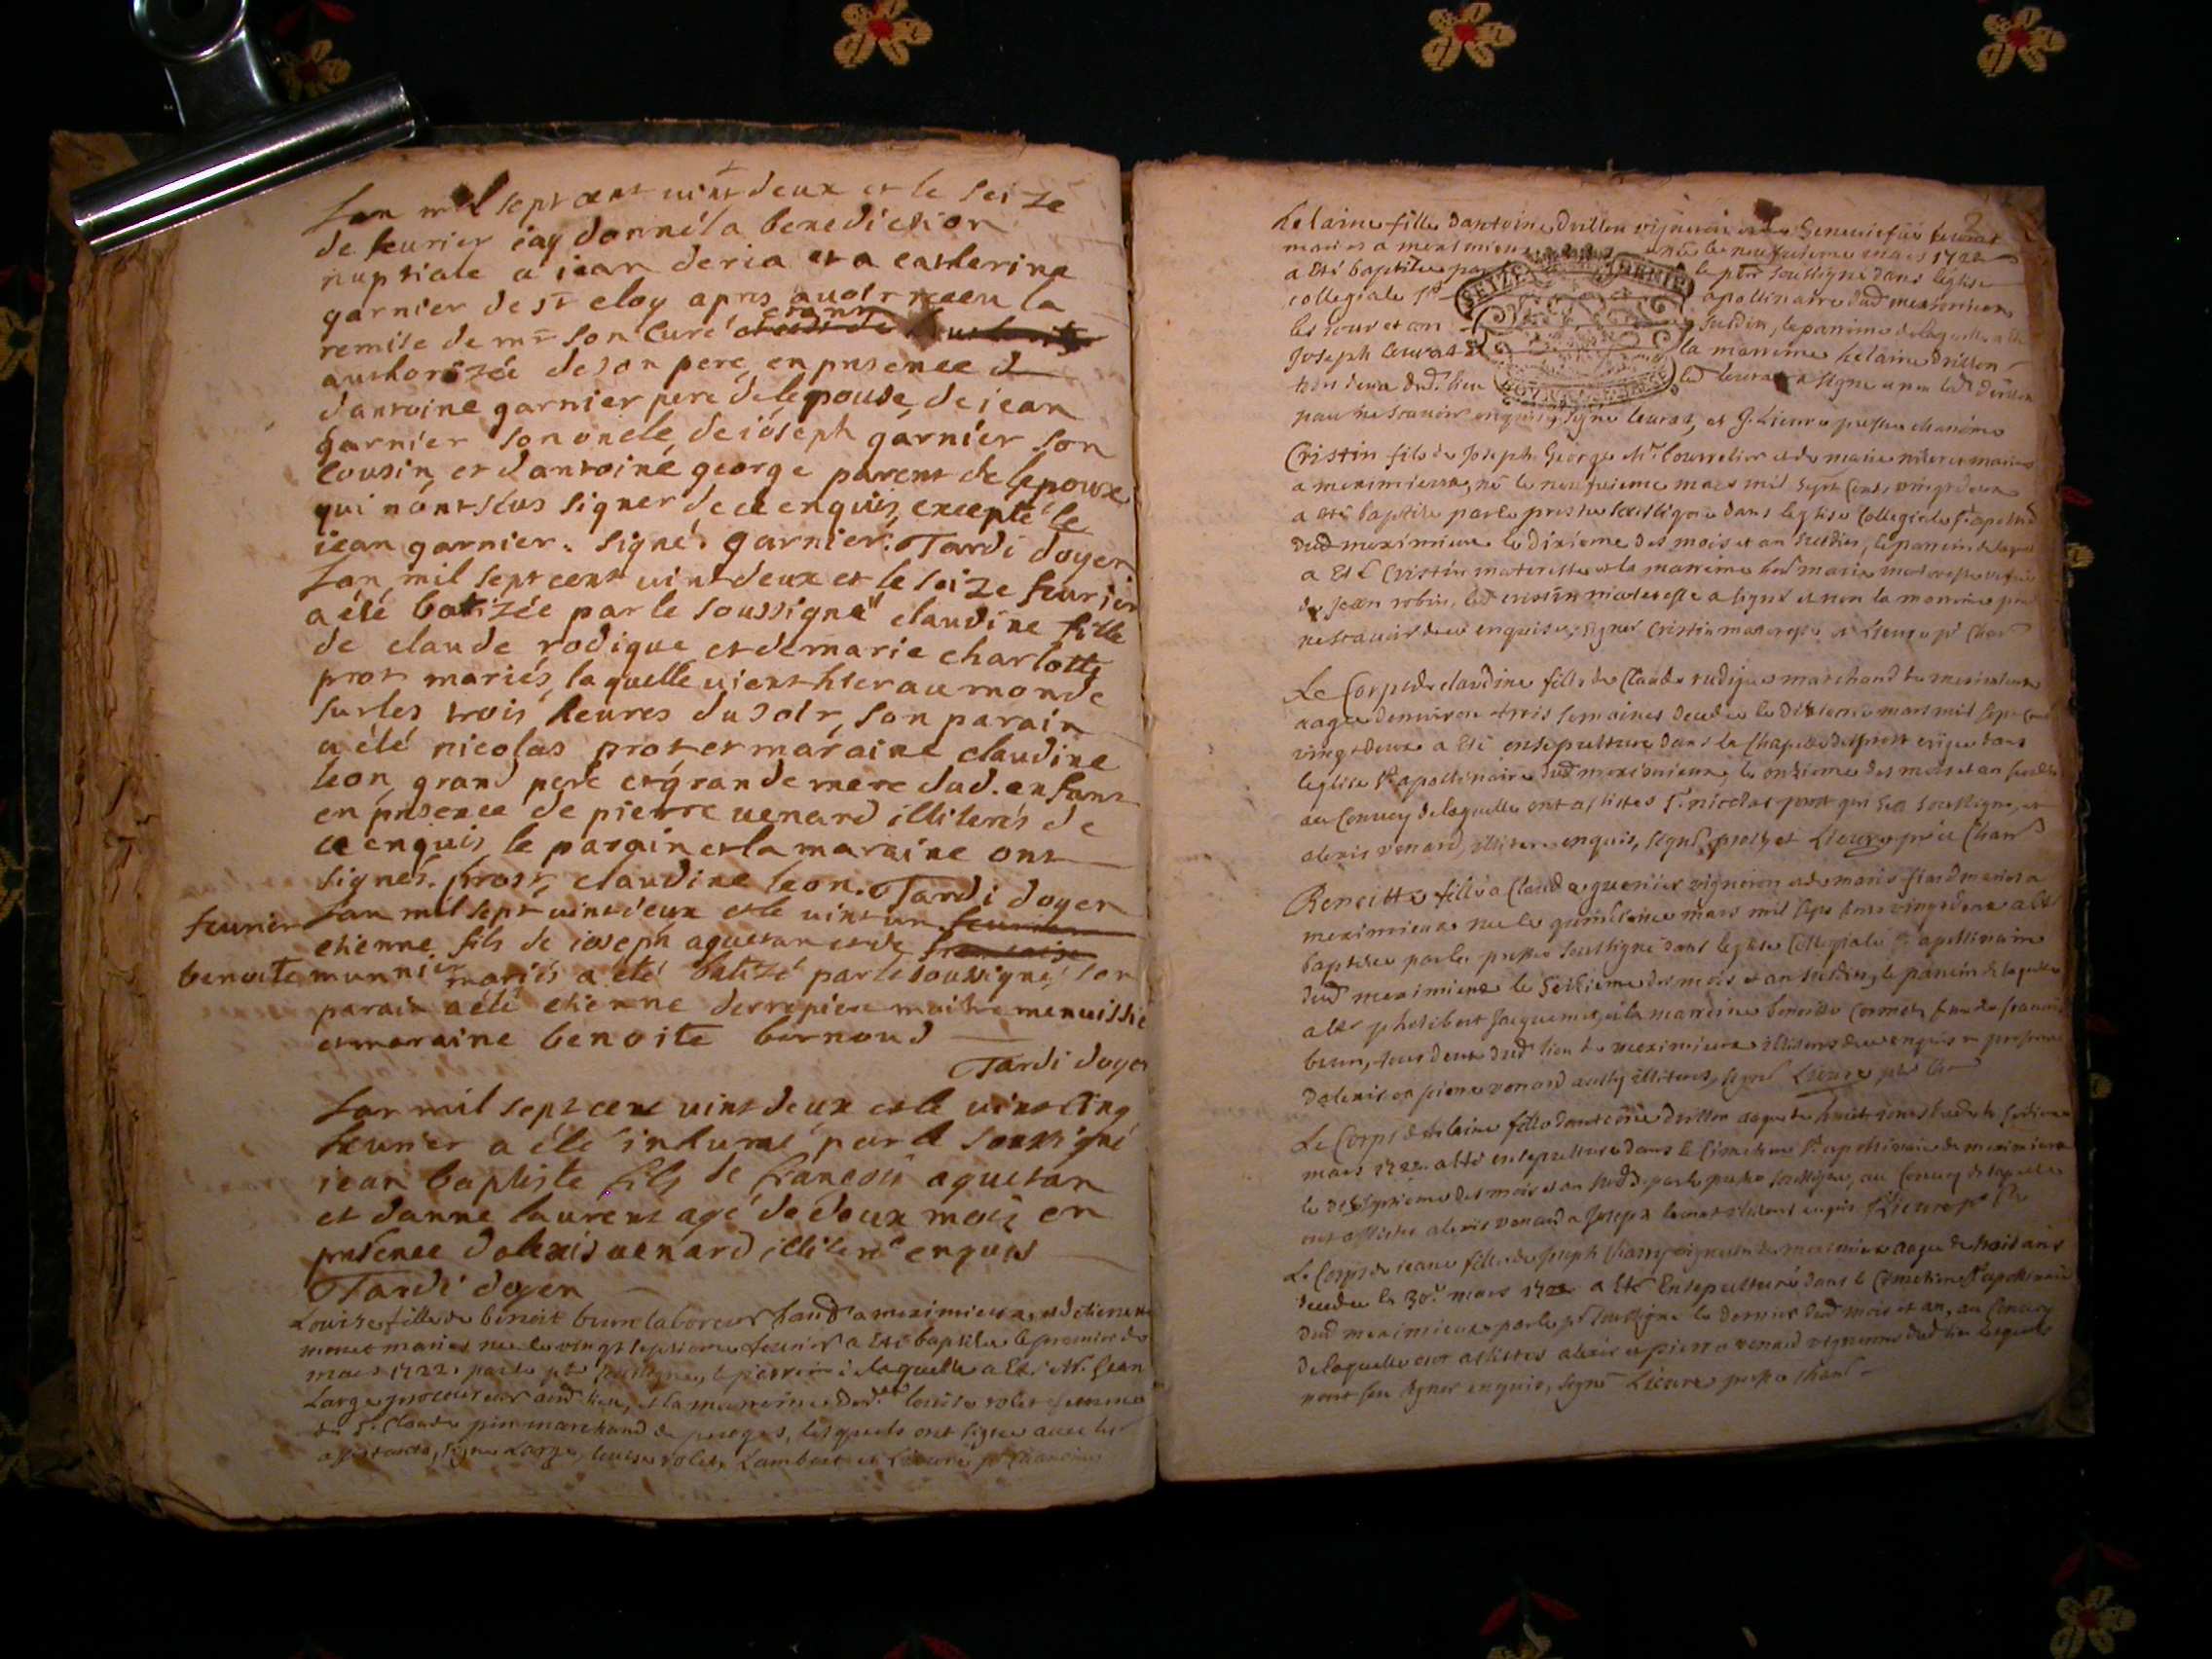 Lan mil sept cent vint deux et le seize
de feurier iay donné la benediction
nuptiale a iean deria et a catherine
garnier de st eloy apres auoir receu la
remise de mr son Curé
authorizée de son pere, en presence
dantoine garnier pere de lepouse, de iean
garnier son oncle, de ióseph garnier son
cousin, et dantoiné george parent de lepoux
qui nónt sceus signer de ce enquis, excepté le
iean garnier. signé. garnier. Tardi doyen
Lan mil sept cent vint deux et le seize feurier
a été batizée par le soussigné claudine fille
de claude rodique et de marie charlotte
prost mariés, laquelle vient hier au monde
sur les trois heures du soir, son parain
a été nicolas prost et maraine claudine
leon, grand pere et grande mere dud. enfant
en presence de pierre uenard illiterés de
ce enquis, le parain et la maraine ont
signés. prost, claudine leon. Tardi doyen
feurier Lan mil sept vint deux et le vint un
etienne fils de ioseph aguetan et de
benoite munnier mariés a été batizé par le soussigné, son
parain a été etienne derrepiere maitre menuissie
et maraine benoite bernoud
Tardi doyen
Lan mil sept cent vint deux et le vint cinq
feurier a été inhumé par le soussigné
iean baptiste fils de francois aguetan
et danne laurent agé de deux mois en
presence dalexis uenard illiteré enquis
Tardi doyen
Louise fille de benoit brun laboreur a meximieux, et detienne
monet mariés née le vingt septieme feurier a Eté baptisée le premier de
mars 1722. par le ptre soussigné, le parrein de laquelle a Eté Mr. Jean
Large procureur aud. lieu, et la marreine louise rolet femme
de Sr. Claude marchand de peroges, lesquels ont signé auec les
signé Large, louise rolet, Lambert et Lieure ptre chanoine
2
helaine fille dantoine drillon vigneron et de Geneuiefue leurat
mariés a meximieux née le neufuieme mars 1722
a Eté baptisée par le ptre soussigné dans leglise
collegiale St apollinaire dud meximieux
les jour et an susdits, le parrein de laquelle a Eté
Joseph leurat et la marreine helaine drillon
tous deux dud. lieu led leurat a signé et non lad drillon
pour ne scauoir enquise, signé leurat, et G. Lieure prestre chanoine
SEIZE
Cristin fils de Joseph George Mr. bourrelier et de marie mariés
a meximieux, né le neufuieme mars mil sept Cent vingt deux
a eté baptisé par le prestre soussigné dans leglise Collegiale St apollin
dud meximieux le dixieme des mois et an susdits, le parrein duquel
a Eté Cristin materesse et la marreine marie
de Jean robin, led cristin materesse a signé et non la marreine pour
ne scauoir de ce enquise, signé Cristin materesse et Lieure pr Chan
Le Corps de claudine fille de Claude rudigue marchand de meximieux
aagée denuiron trois semaines decedée le dixieme mars mil sept Cent
vingt deux a Eté ensepulturée dans la Chapelle des prost erigée dans
leglise St apollinaire dud meximieux, le onzieme des mois et an susdits
au Conuoy de laquelle ont assistés Sr. nicolas prost qui sest soussigné, et
alexis venard, illiteré enquis, signé, prost et Lieure ptre Chan
Benoitte fille a Claude guernier vigneron et de marie mariés a
meximieux née le quinzieme mars mil sept cent vingt deux a Eté
baptisée par le prestre soussigné dans leglise Collegiale St apollinaire
dud meximieux le Seizieme des mois et an susdits, le parrein de laquelle
a Eté philibert Jacquemet, et la marreine benoitte Cormet, femme de
brun, tous deux dud lieu de meximieux illiterés de ce enquis en presence
dalexis et pierre venard aussy illiterés, signé Lieure ptre Chan
Le Corps dhelaine fille dantoine drillon aagée de huit jours decedée le seizieme
mars 1722. a Eté ensepulturée dans le Cimetiere St apollinaire de meximieux
le dixseptieme des mois et an susd. par le prestre soussigné, au Conuoy de laquelle
ont assistés alexis venard et Joseph leurat illiterés enquis Lieure ptre Ch
Le Corps de ieanne fille de Joseph Charry vigneron de meximieux aagée de trois ans
decedée le 30e. mars 1722 a Eté Ensepulturée dans le Cimetiere St apollinaire
dud meximieux par le pr soussigné le dernier dud mois et an, au Conuoy
de laquelle ont assistés alexis et pierre venard vignerons dud lieu lesquels
nont sceu signer enquis, signé Lieure prestre Chan